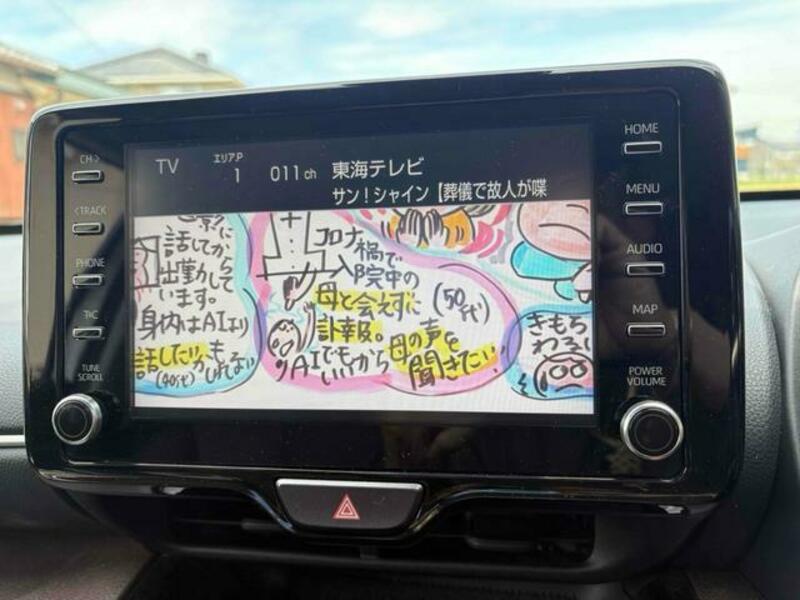 CH>
<TRACK
PHONE
TUNE
SCROLL
TV
エリア.P
1
011ch
東海テレビ
サン！シャイン【葬儀で故人が喋
HOME
MENU
AUDIO
MAP
POWER
VOLUME
話してから
出勤して
います。
身内はAIより
話したいかも
しれない
(40代)
コロナ禍で
入院中の
母と会えずに
訃報。
(50代)
AIでもいいから
母の声を
聞きたい!
きもち
わるい